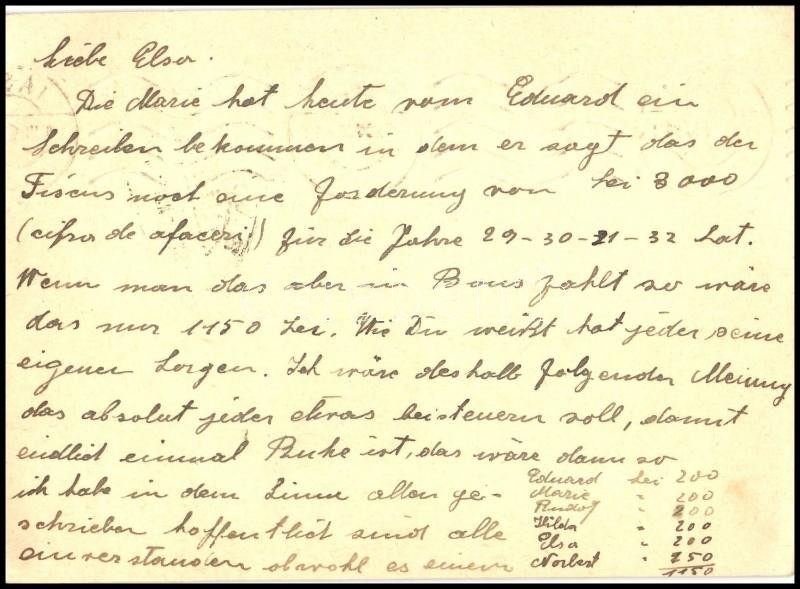 Liebe Elsa.
Die Marie hat heute vom Eduard ein
Schreiben bekommen in dem er sagt das der
Fiscus noch eine Forderung von Lei 8000
(cifra de afaceri) für die Jahre 29-30-31-32 hat.
Wenn man das aber in Bons zahlt so wäre
das nur 1150 Lei. Wie Du weißt hat jeder seine
eigenen Sorgen. Ich wäre deshalb folgender Meinung
das absolut jeder etwas beisteuern soll, damit
endlich einmal Ruhe ist, das wäre dann so
Eduard Lei 200
Marie " 200
Rudolf " 200
Hilda " 200
Elsa " 200
Norbert " 150
1150
ich habe in dem Sinne allen ge-
schrieben hoffentlich sind alle
einverstanden obwohl es einem